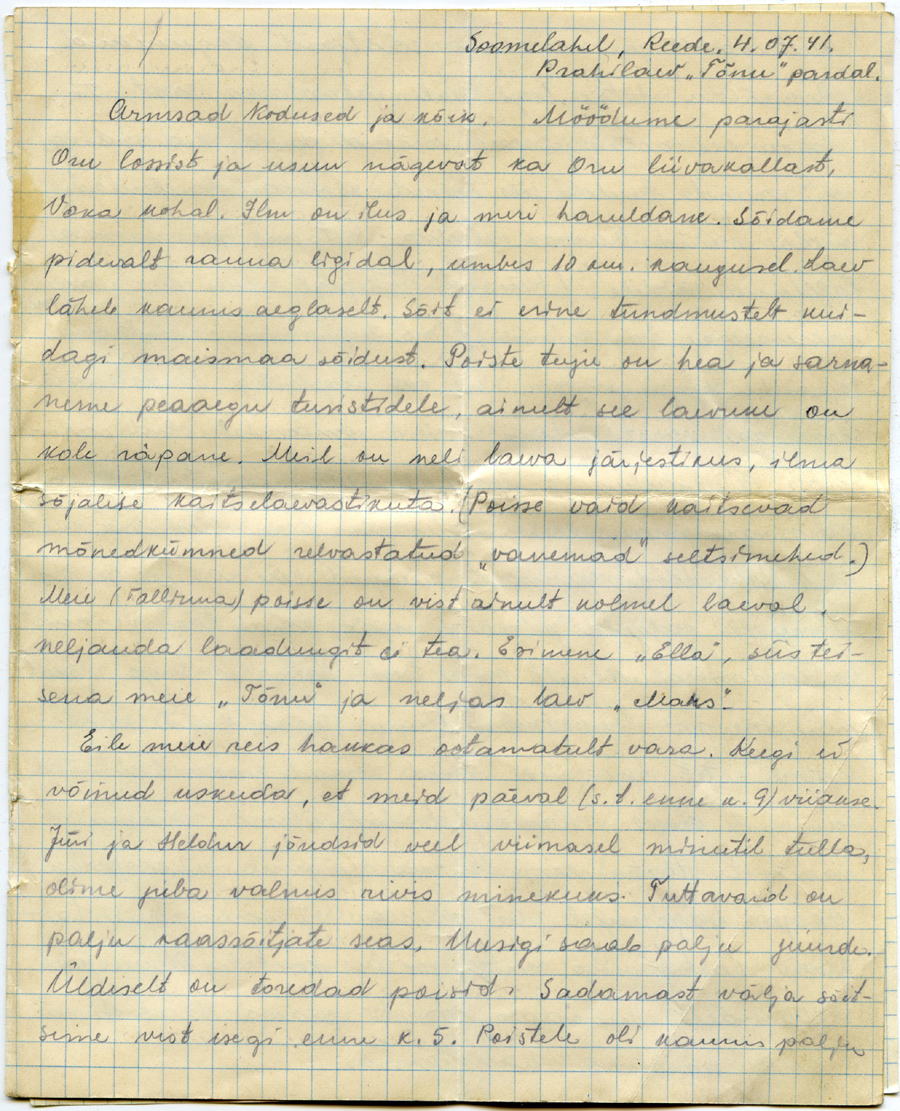 Soomelahel, Reede, 4.07.41.
Prahilaev „Tõnu" pardal.
Armsad Kodused ja kõik. Möödume parajasti
Oru lossist ja usun nägevat ka Oru liivakallast,
Voka kohal. Ilm on ilus ja meri haruldane. Sõidame
pidevalt ranna ligidal, umbes 10 km. kaugusel. Laev
läheb kaunis aeglaselt. Sõit ei erine tundmustelt kui-
dagi maismaa sõidust. Poiste tuju on hea ja sarna-
neme peaaegu turistidele, ainult see laevuke on
kole räpane. Meil on neli laeva järjestikus, ilma
sõjalise kaitselaevastikuta. (Poisse vaid kaitsevad
mõnedkümned relvastatud „vanemad" seltsimehed.)
Meie (Tallinna) poisse on vist ainult kolmel laeval,
neljanda laadungit ei tea. Esimene „Ella", siis tei-
sena meie „Tõnu" ja neljas laev „Maks".-
Eile meie reis hakkas ootamatult vara. Keegi ei
võinud uskuda, et meid päeval (s.t. enne k. 9) viiakse.
Jüri ja Heldur jõudsid veel viimasel minutil tulla,
olime juba valmis rivis minekuks. Tuttavaid on
palju kaassõitjate seas, Uusigi saab palju juurde.
Üldiselt on toredad poisid. Sadamast välja sõit-
sime vist isegi enne k. 5. Poistele oli kaunis palju